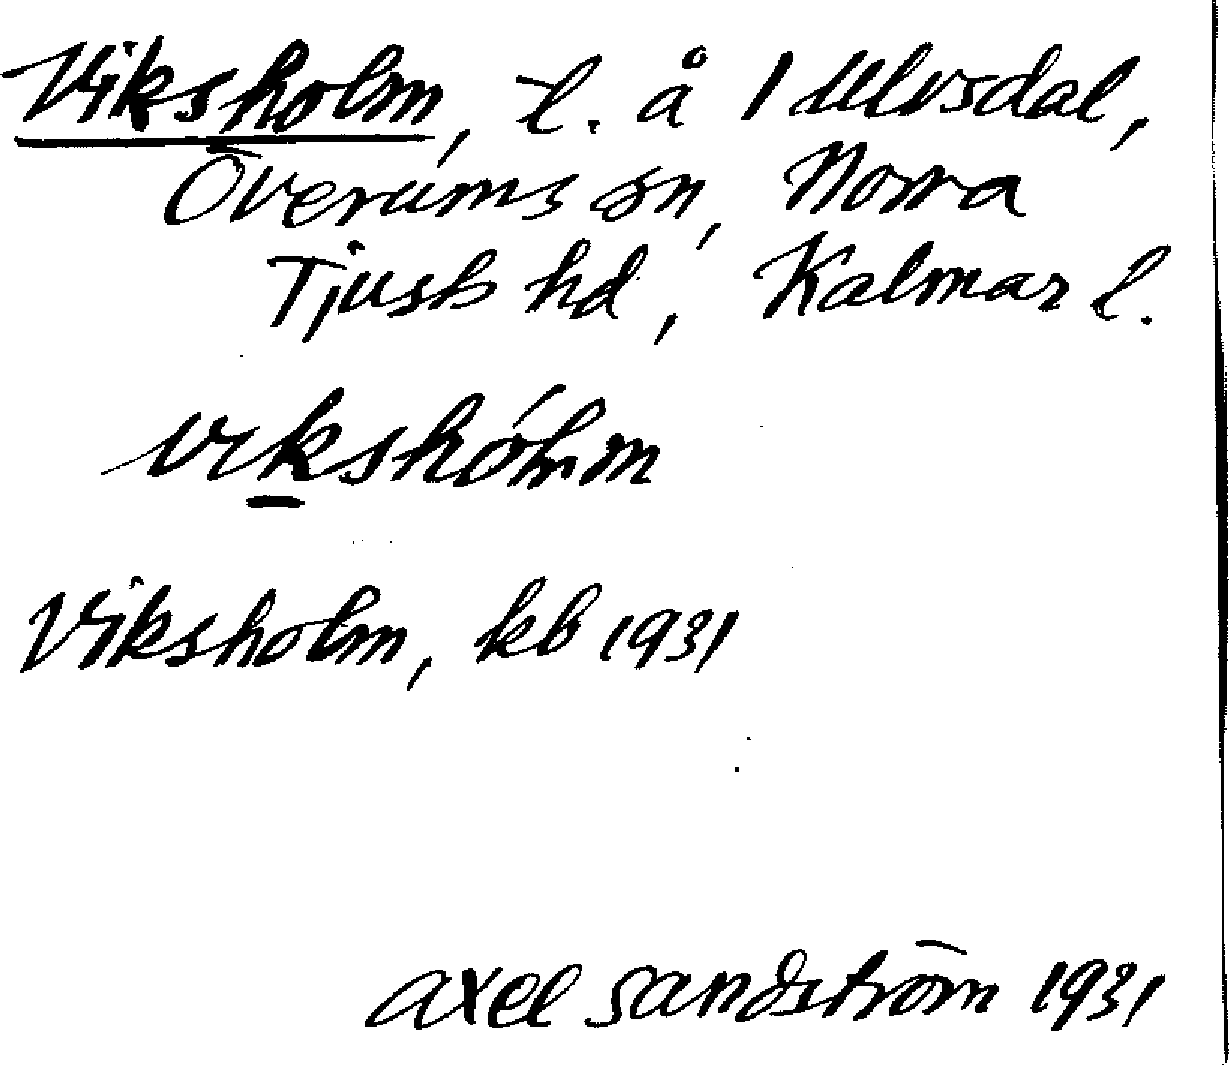 Viksholm, l. å 1 Ulvsdal,
Överums sn, Norra
Tjusts hd, Kalmar l.
vikshólm
Viksholm, kb 1931
Axel Sandström 1931